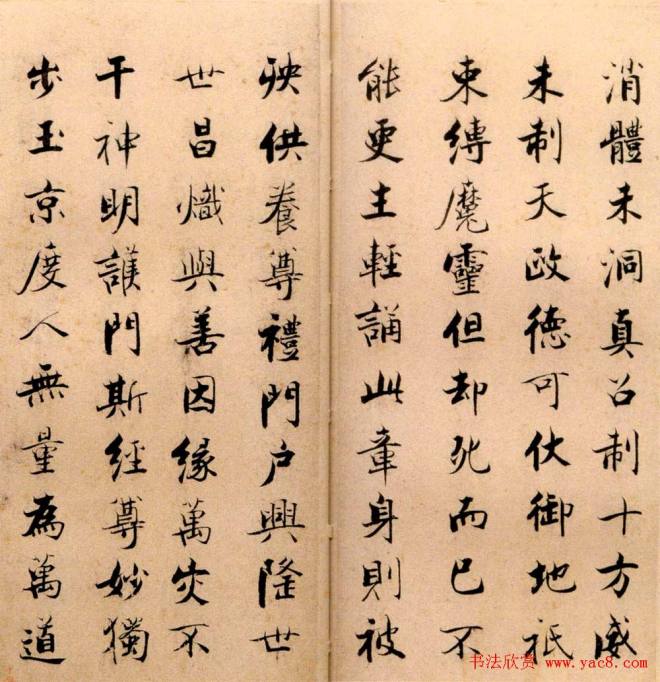 消體未洞真召制十方威
未制天政德可伏御地祇
束縛魔靈但却死而已不
能更生輕誦此章身則被
殃供養尊禮門戶興隆世
世昌熾與善因緣萬災不
干神明護門斯經尊妙獨
步玉京度人無量為萬道
书法欣赏 www.yac8.com